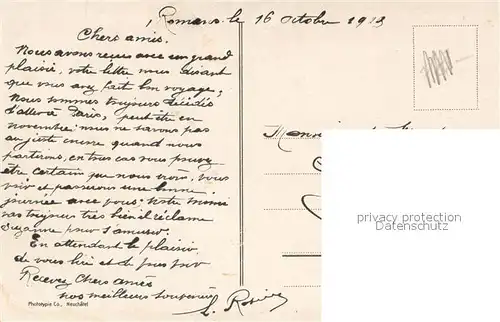 Romans le 16 octobre 1913
Chers amis.
Nous avons reçu avec un grand
plaisir, votre lettre nous disant
que vous avez fait bon voyage,
Nous sommes toujours décidés
d'aller à Paris, peut être en
novembre nous ne savons pas
au juste encore quand nous
partirons, en tous cas vous pouvez
être certain que nous irons, vous
voir et passerons une bonne
journée avec vous. Notre
va toujours très bien il réclame
Suzanne pour s'amuser.
En attendant le plaisir
de vous lire et de
Recevez Chers amis
nos meilleurs souvenirs
L.
Phototypie Co., Neuchâtel
privacy protection
Datenschutz